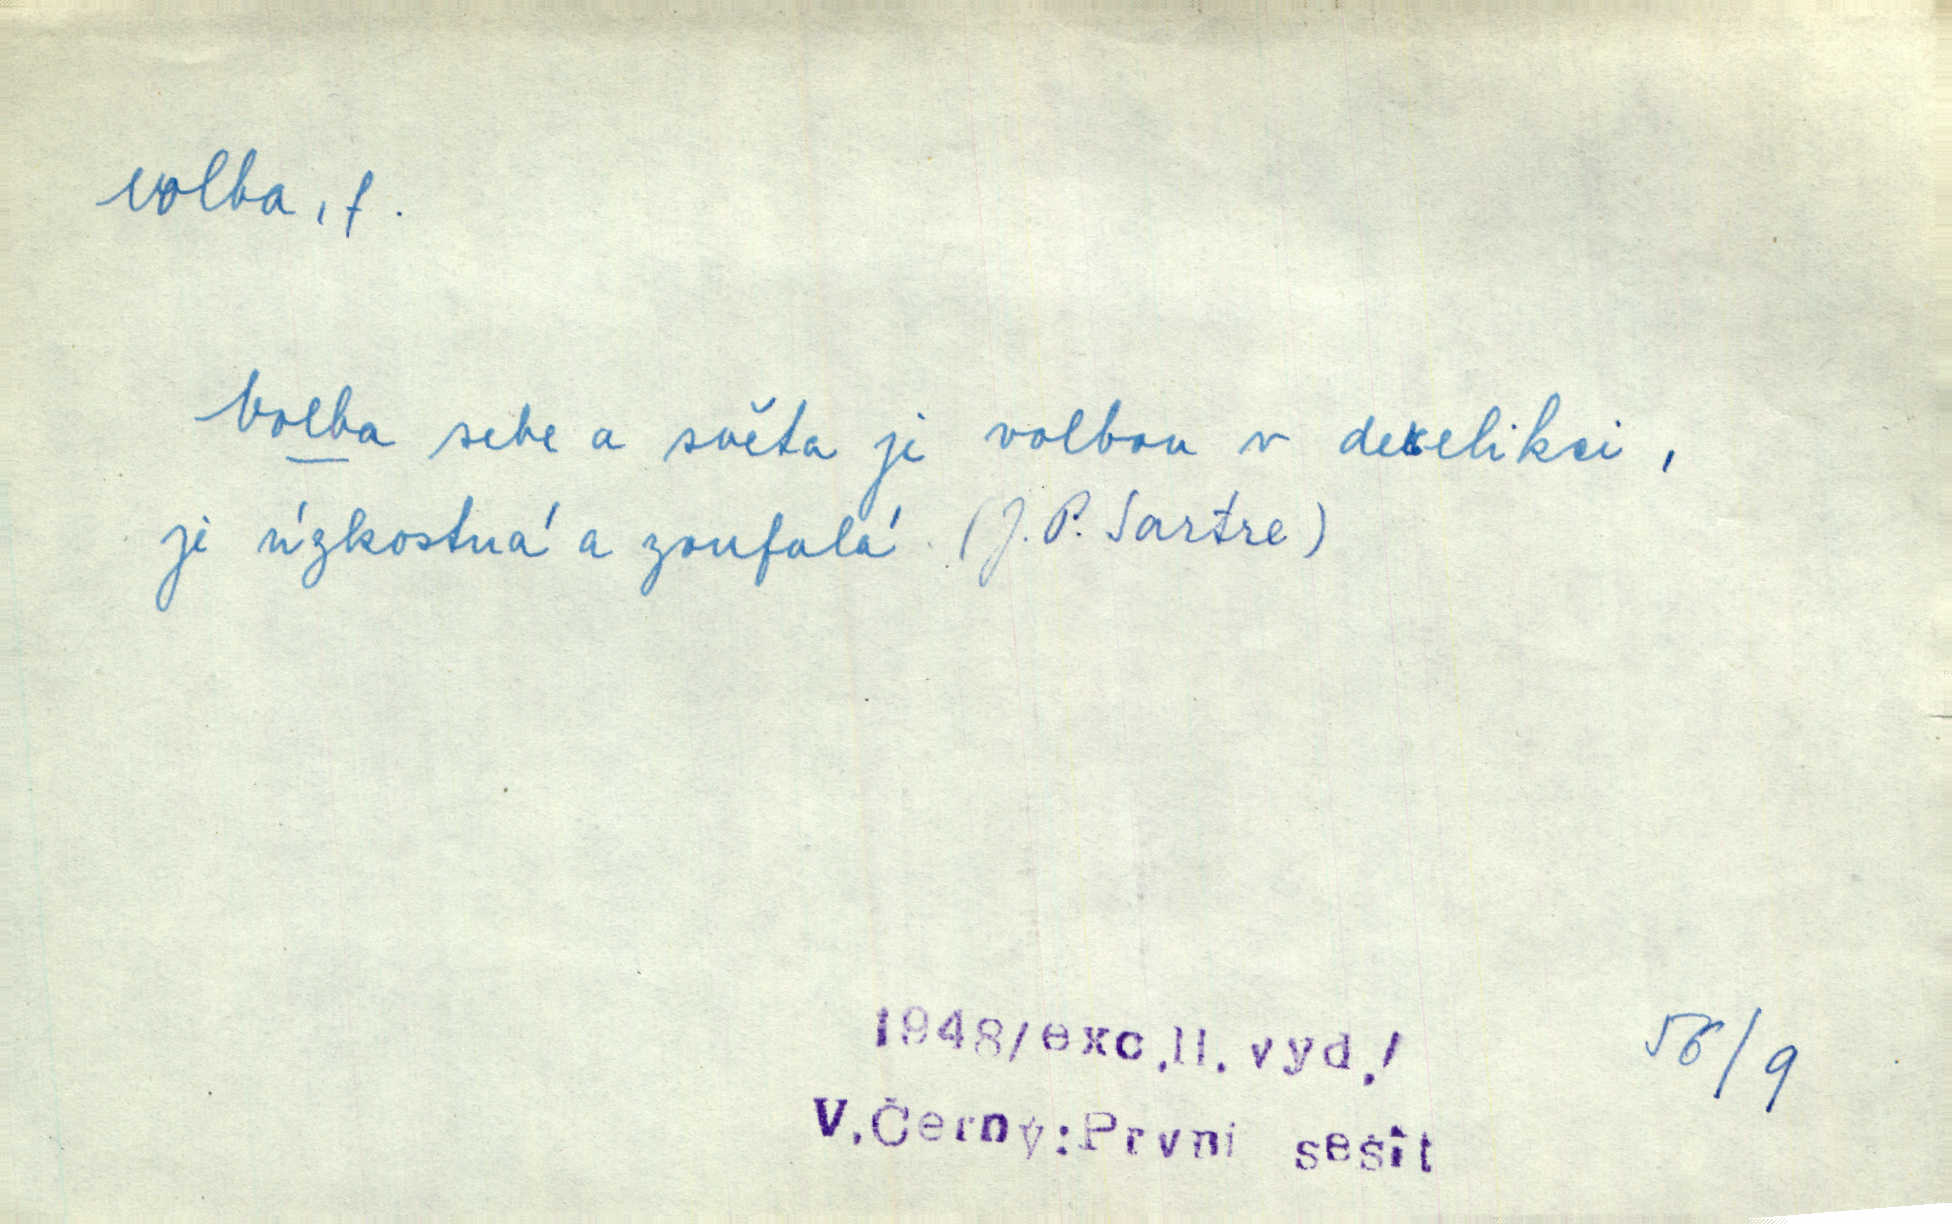 volba, f.
Volba sebe a světa je volbou v derelikci,
je úzkostná a zoufalá. (J. P. Sartre)
1948/exc.II. vyd./
56/9
V.Černý:První sešit